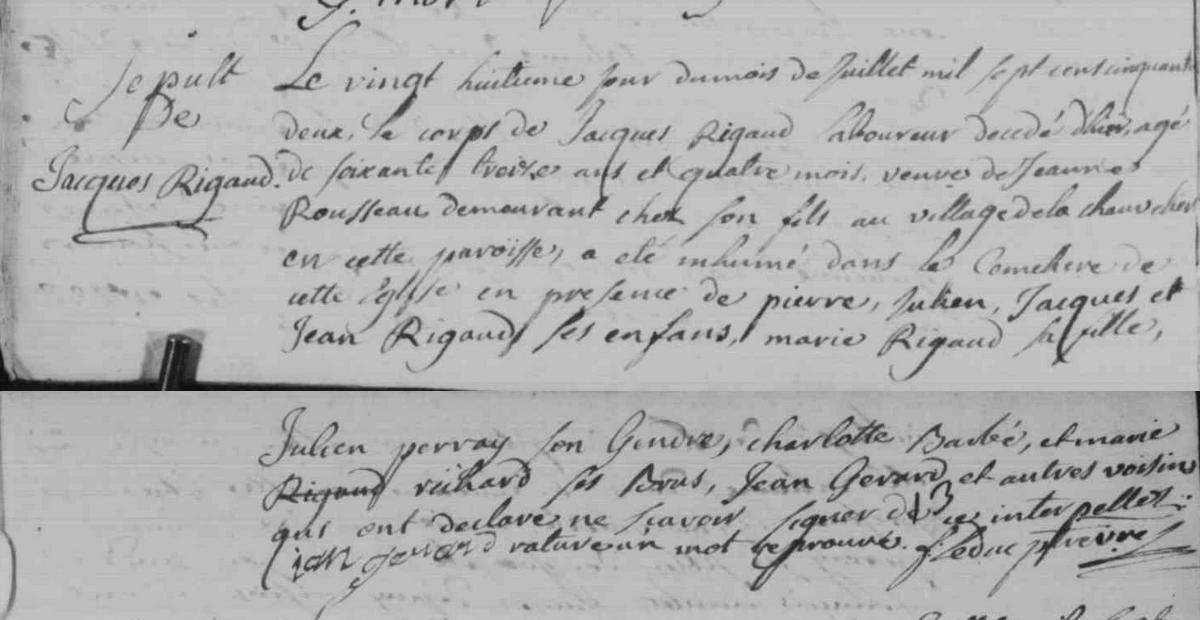 Sepult
De
Jacques Rigaud.
Le vingt huitieme jour du mois de Juillet mil sept cens cinquante
deux, le corps de Jacques Rigaud laboureur decedé d'hier, agé
de soixante treize ans et quatre mois, veuve de Jeanne
Rousseau demeurant chez son fils au village de la
en cette paroisse, a eté inhumé dans le Cemetiere de
cette Eglise en presence de pierre, Julien, Jacques et
Jean Rigaud ses enfans, marie Rigaud sa fille,
Julien perray son Gendre, charlotte Barbé, et marie
Rigaud richard ses Brus, Jean Gerard et autres voisins
qui ont declaré ne sçavoir signer de ce interpellés.
jan gerard rature un mot reprouvé. J Leduc ptre vire